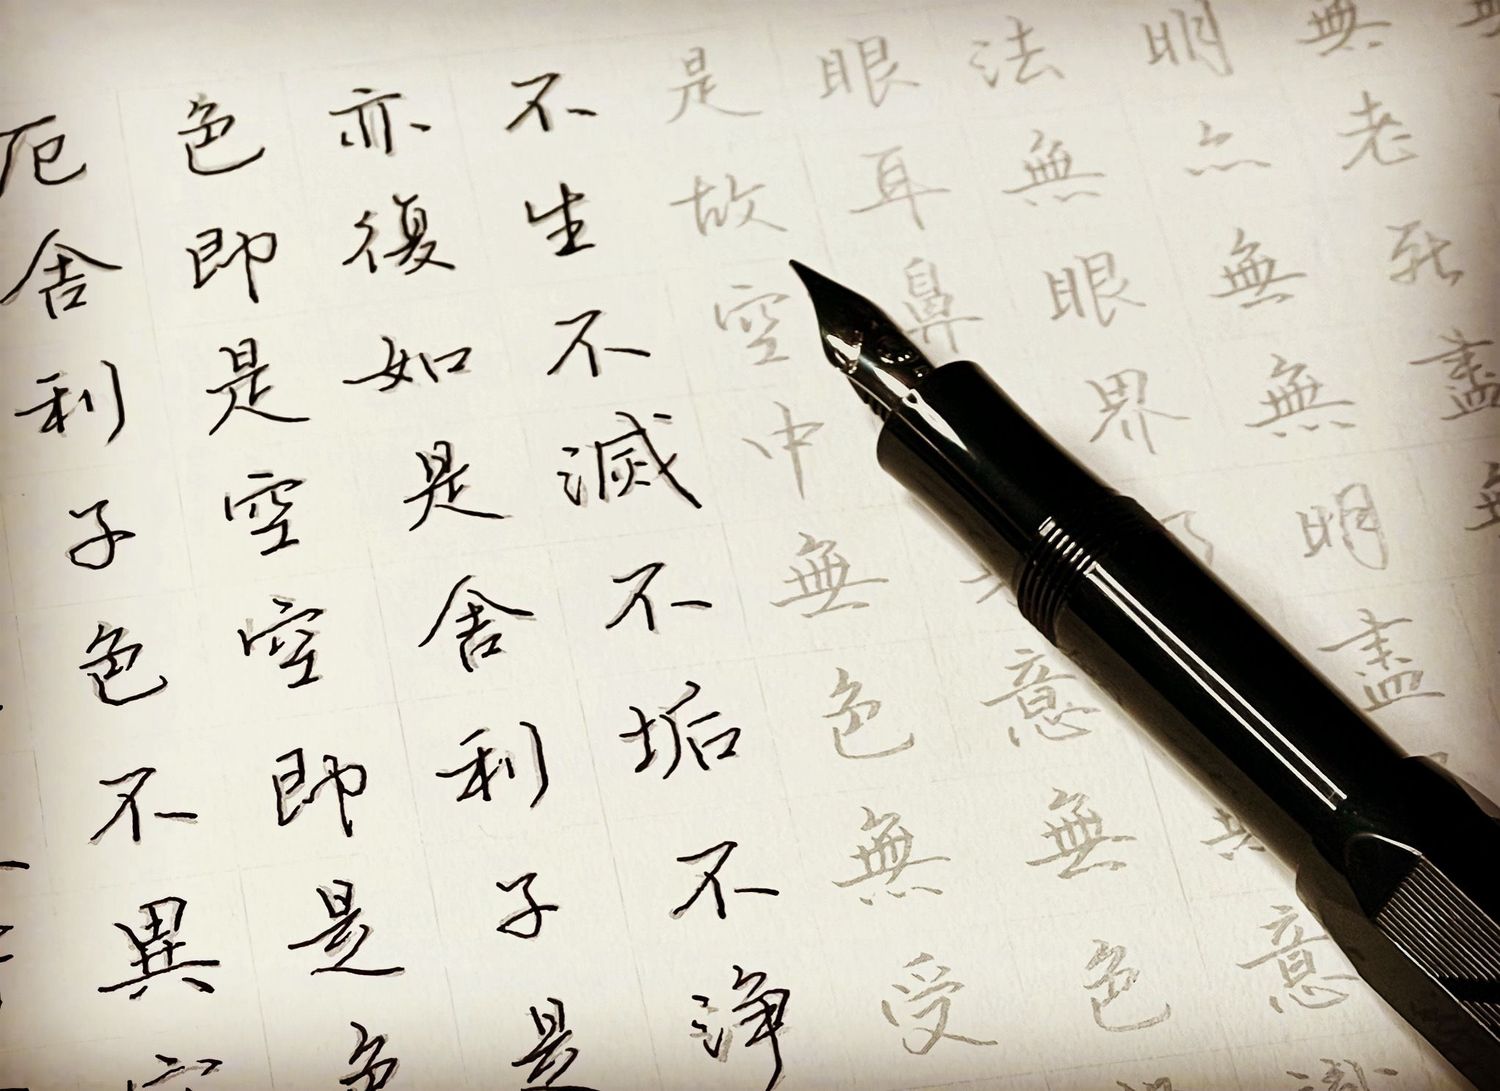 厄舍利子色不異空
色即是空空即是色
亦復如是舍利子是
不生不滅不垢不淨
是故空中無色無受
眼耳鼻意無色
法無眼界乃無意
明亦無無明盡
無老死盡無